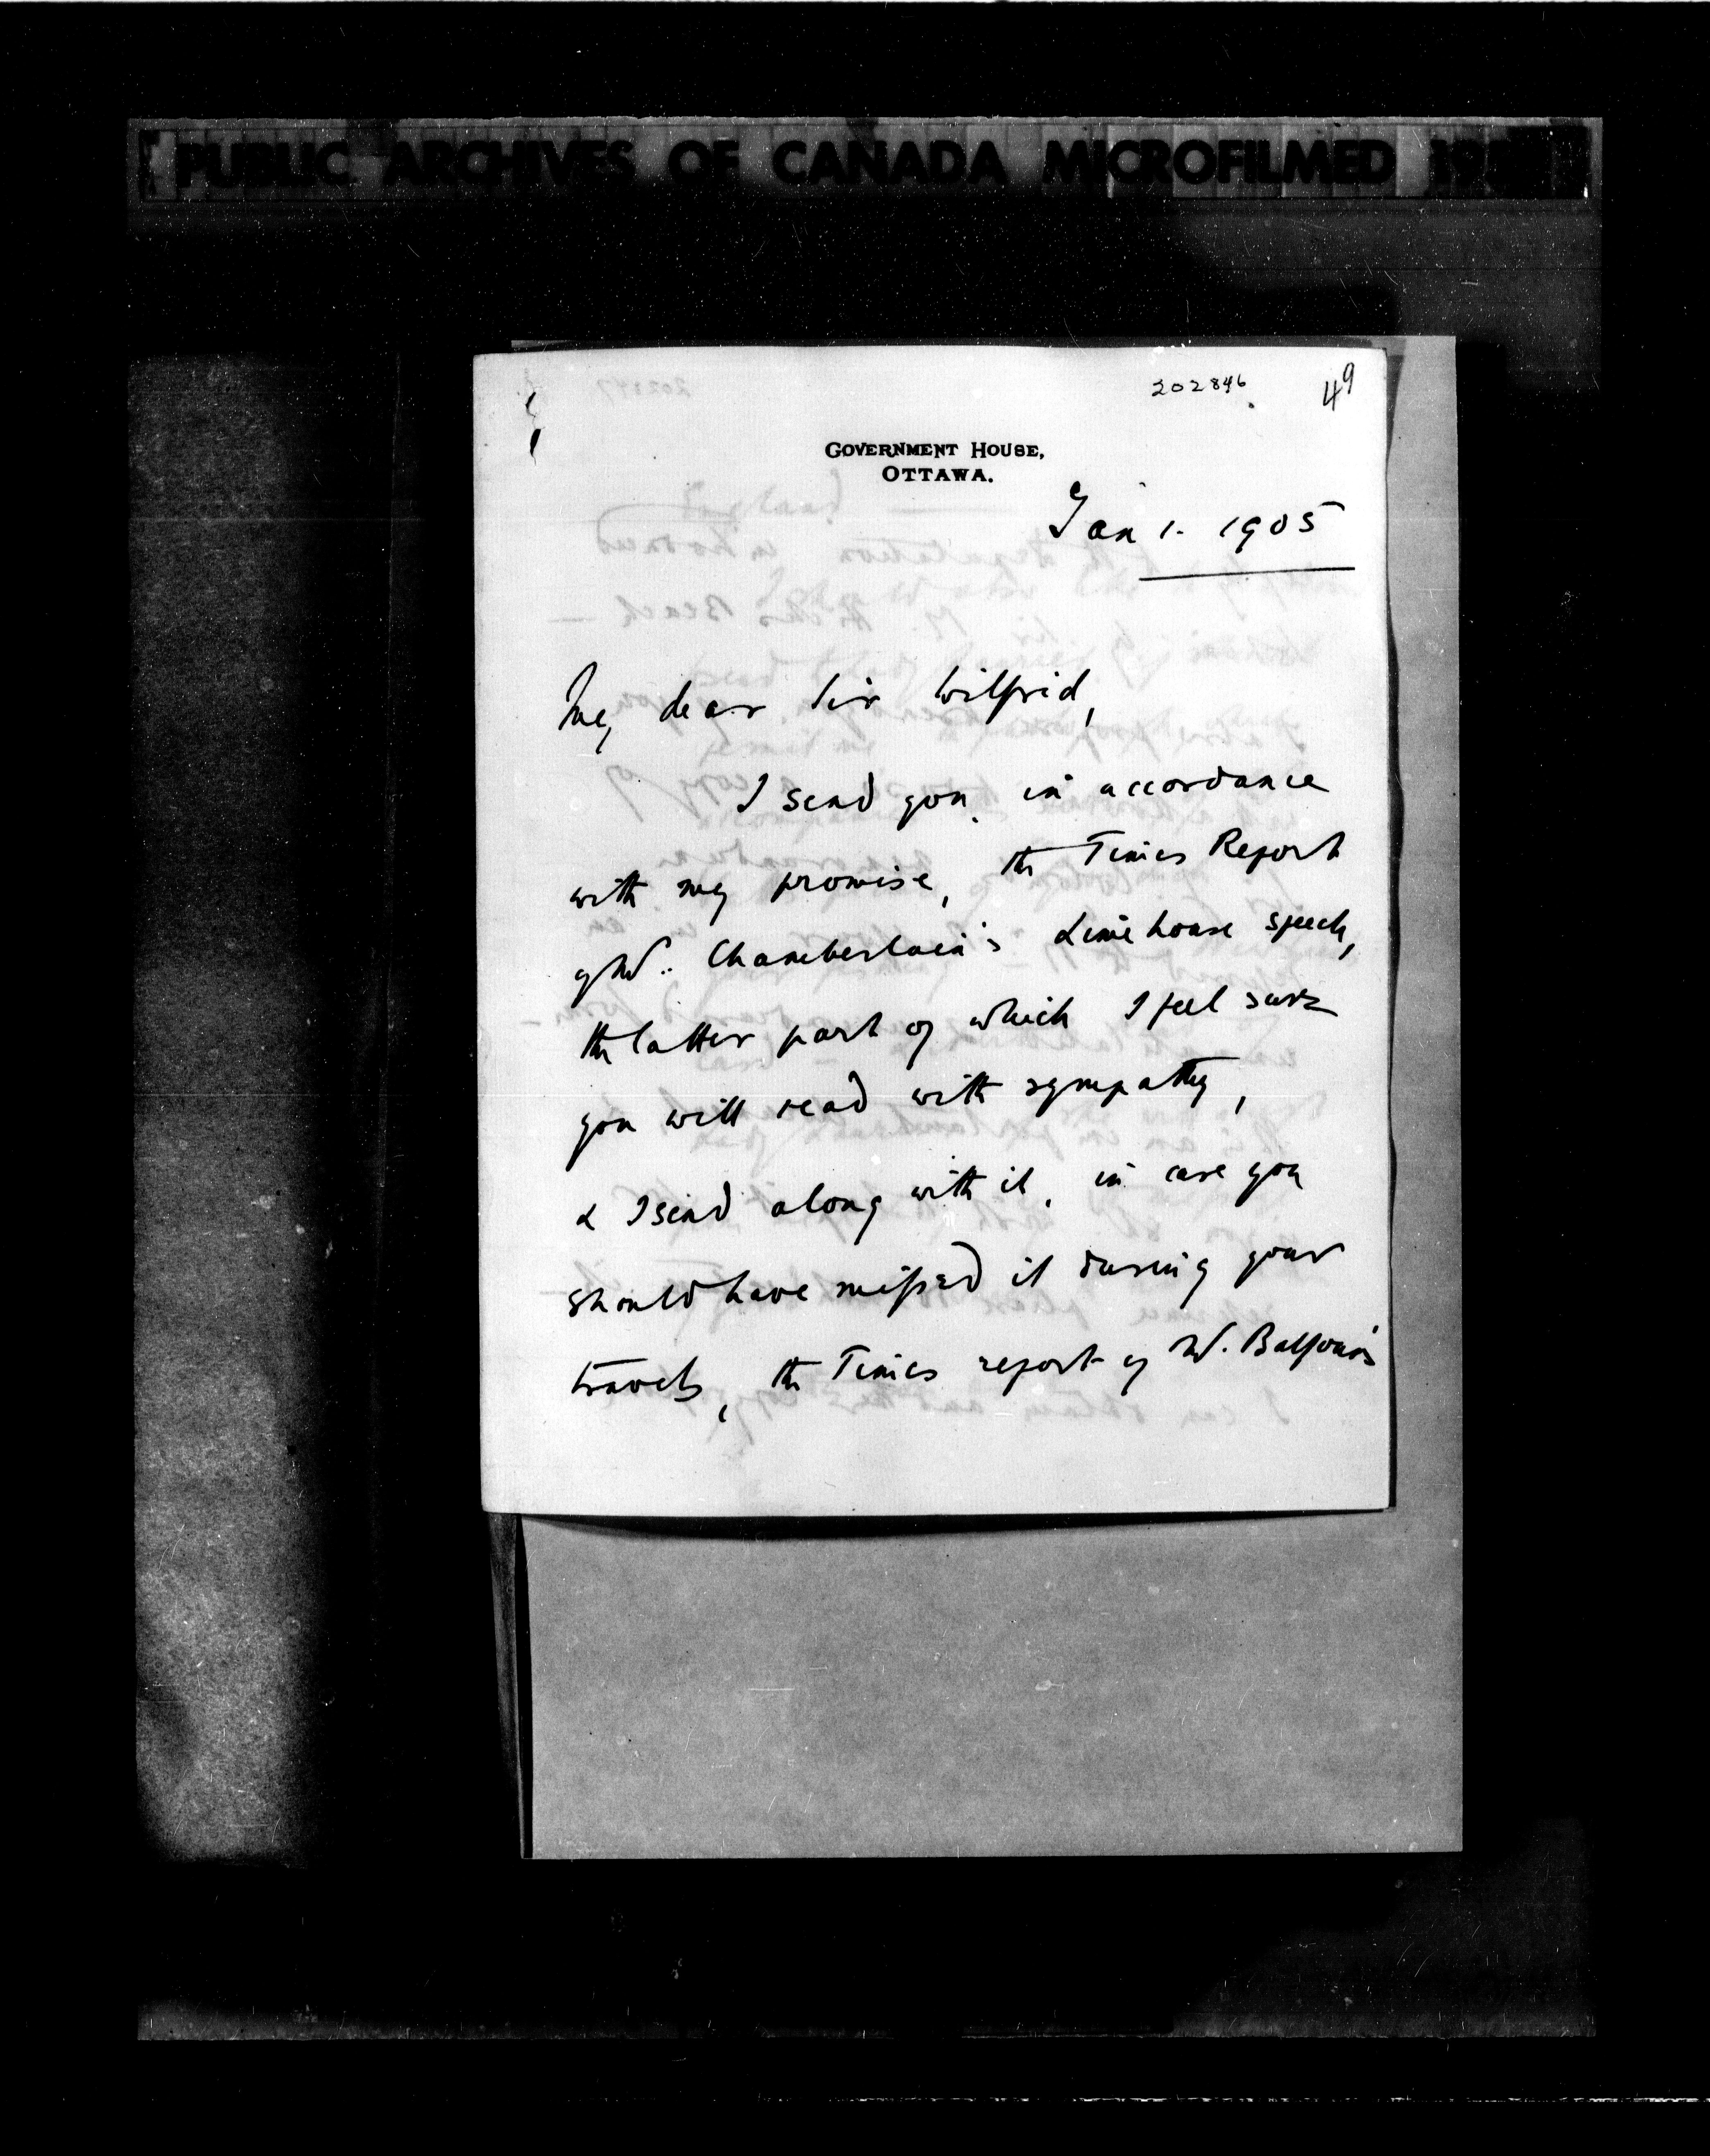 PUBLIC ARCHIVES OF CANADA MICROFILMED
202846
49
GOVERNMENT HOUSE,
OTTAWA.
Jan 1. 1905
My dear Sir Wilfrid,
I send you, in accordance
with my promise, the Times Report
of Mr. Chamberlain's Limehouse speech,
the latter part of which I feel sure
you will read with sympathy,
& I send along with it, in case you
should have missed it during your
travels, the Times report of Mr. Balfour's